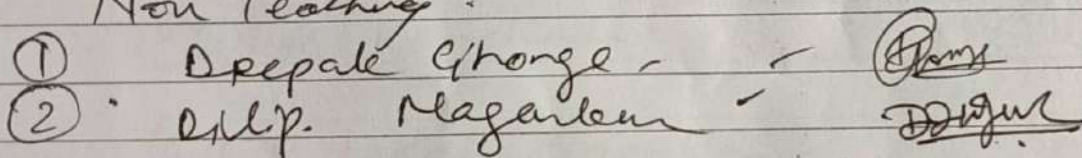 Non Teaching.
① Deepak Ghonge - -
② Dilip. Nagarkar -